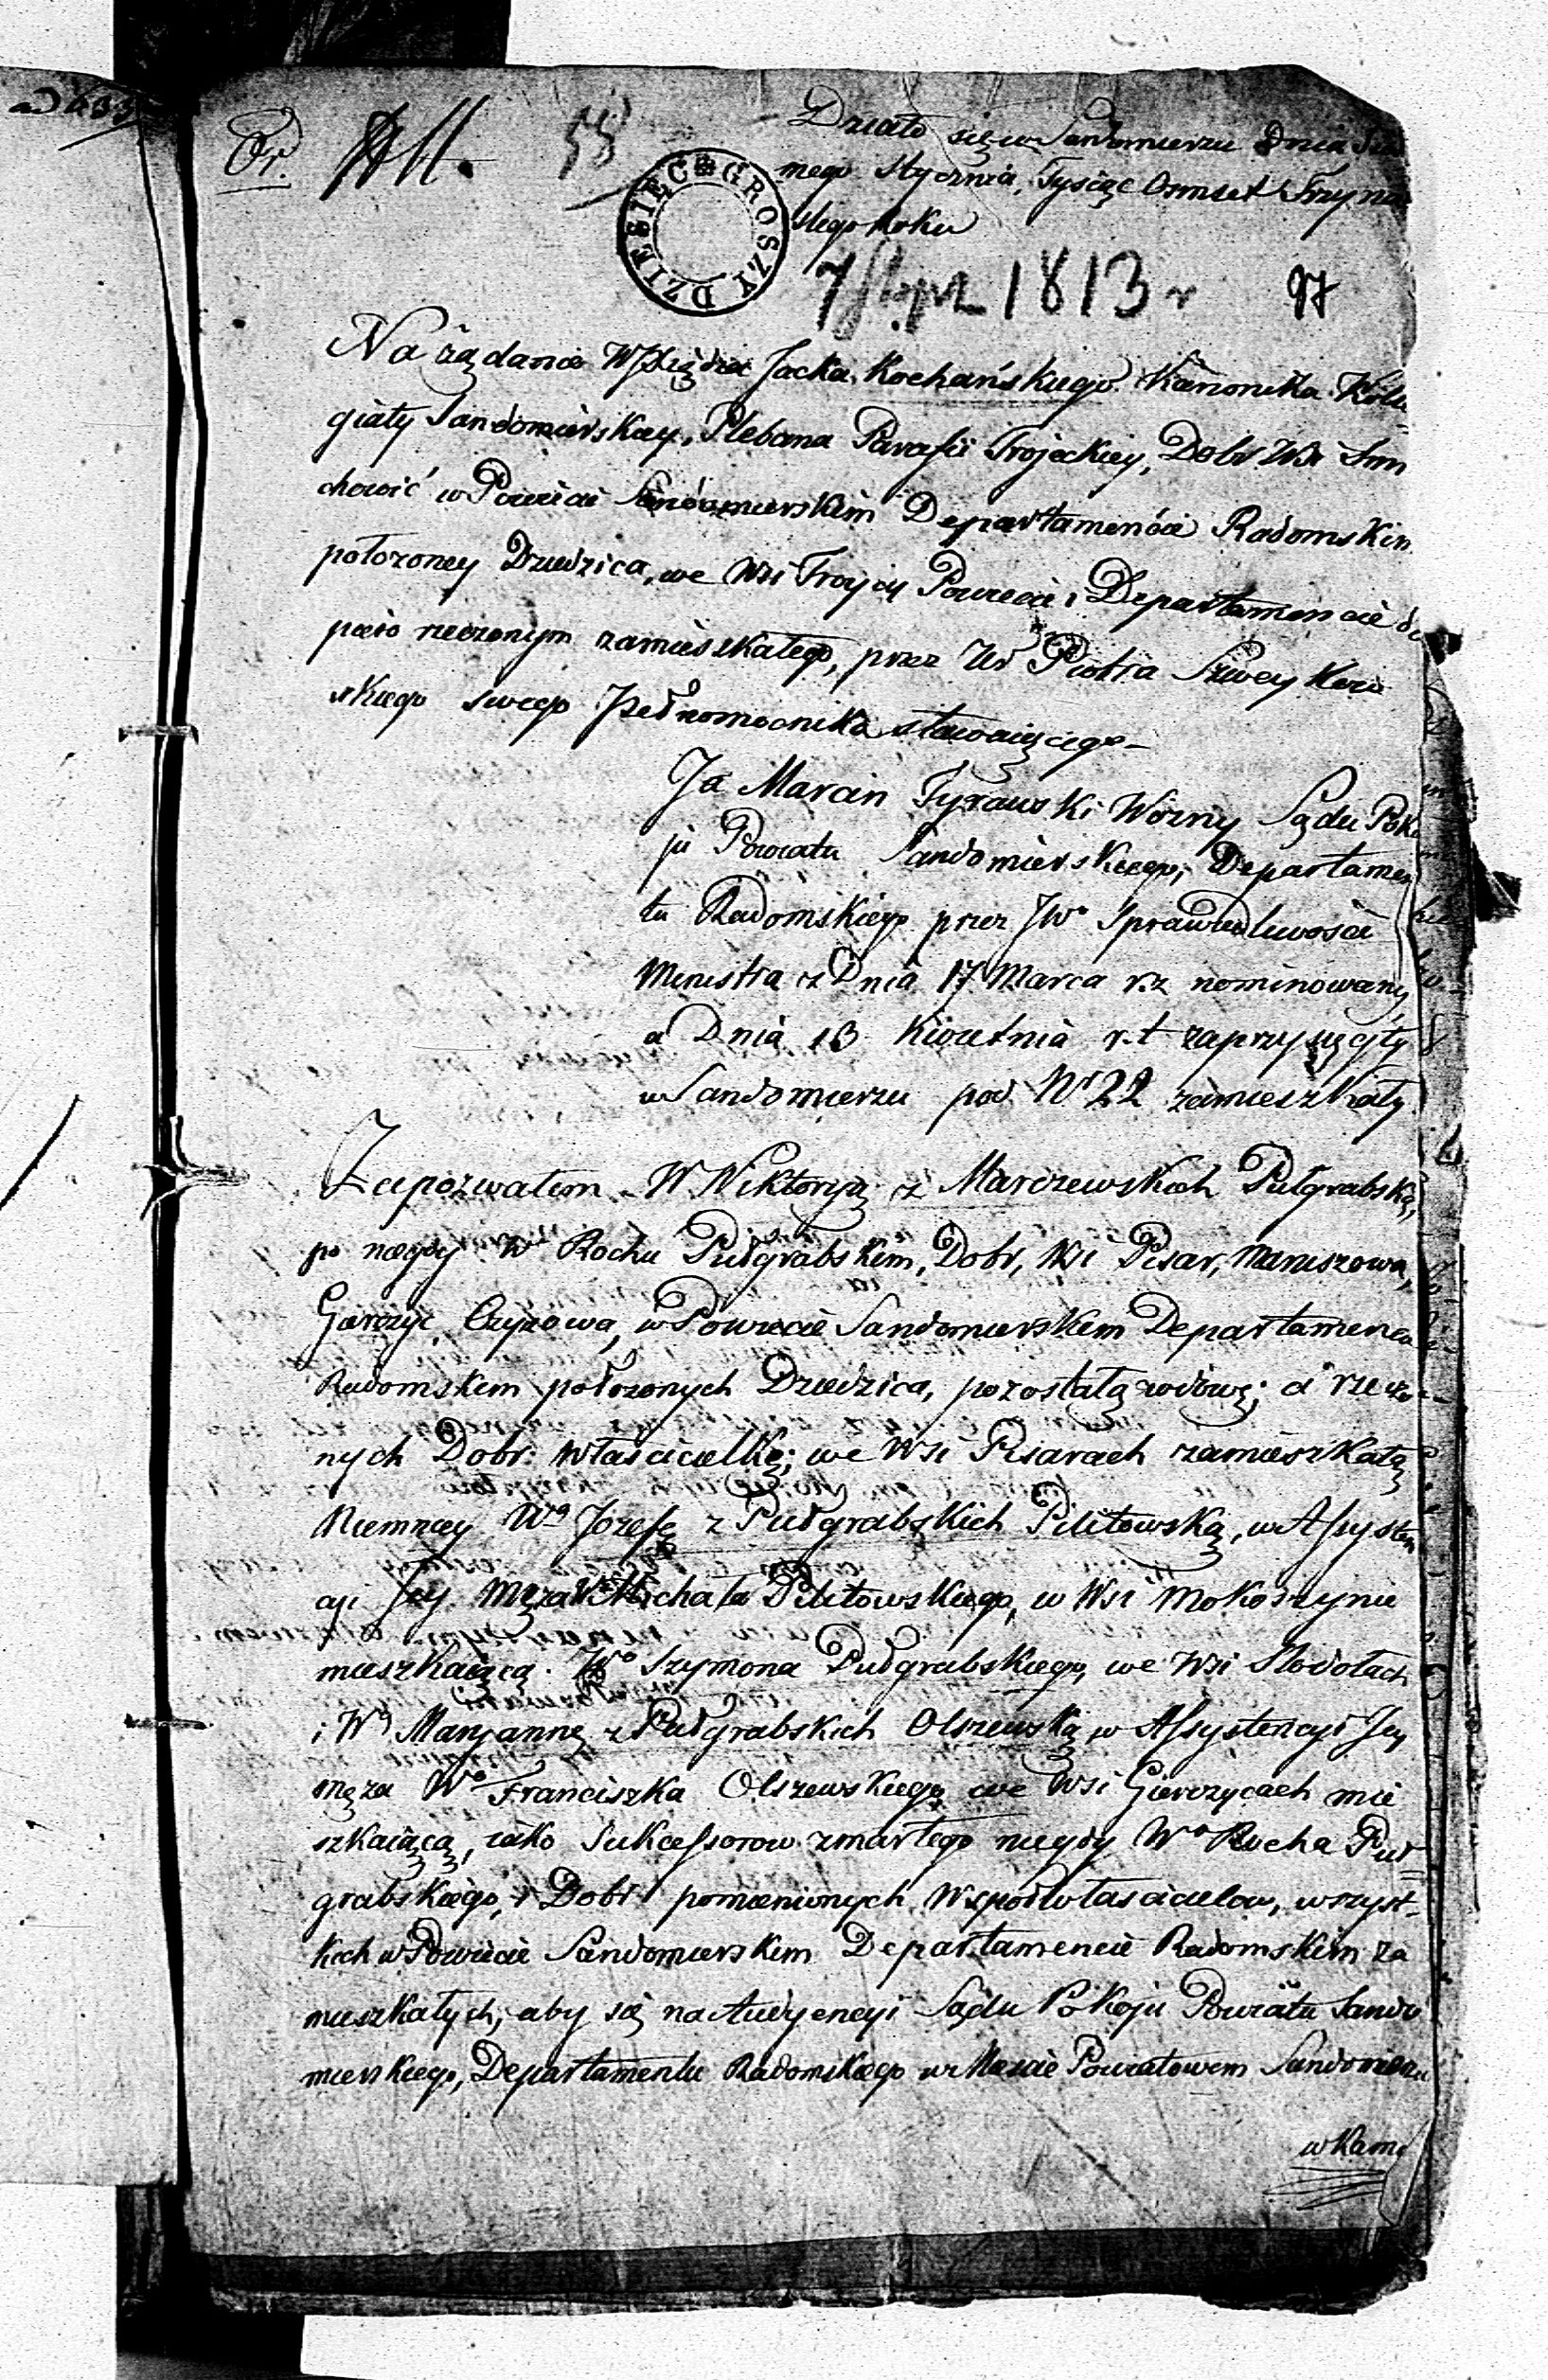 ad 433
Or.
58
Działo się w Sandomierzu Dnia Siód
mego Stycznia, Tysiąc Osmset Trzyna
stego Roku
DZIESIĘĆ GROSZY
7 1813 r
97
Na żądanie Xiędza Jacka Kochańskiego Kanonika Kolle
giaty Sandomirskiey, Plebana Parafii Trojeckiey, Dobr Wsi Smu
chowic w Powiecie Sandomierskim Departamencie Radomskim
położoney Dziedzica, we Wsi Troycy Powiecie i Departamencie do
piero rzeczonym zamieszkałego, przez Ur Piotra Szweykow
skiego swego Pełnomocnika stawaiącego –
Ja Marcin Tyrawski Woźny Sądu Poko
iu Powiatu Sandomierskiego, Departamen
tu Radomskiego przez JWo Sprawiedliwości
Ministra z Dnia 17 Marca r.z nominowany,
a Dnia 13 Kwietnia r.t zaprzysięgły
w Sandomierzu pod Nr 22 zamieszkały
Zapozwałem W Wiktoryą z Marczewskich Pułgrabską,
po niegdy W Rochu Pułgrabskim, Dobr, Wsi Pisar, Maruszowa,
Gierczyc, Czyżowa, w Powiecie Sandomierskim Departamencie
Radomskim położonych Dziedzica, pozostałą wdowę; a rzeczo
nych Dobr Właścicielkę; we Wsi Pisarach zamieszkałą
Niemniey Wą Jozefę z Pułgrabskich Pilitowską, w Assysten
cyi Jey Męża W Michała Pilitowskiego, w Wsi Mokoszynie
mieszkaiącą. Wo Szymona Pułgrabskiego, we Wsi Stodołach
i Wą Maryannę z Pułgrabskich Olszewską w Assystencyi Jey
męża Wo Franciszka Olszewskiego we Wsi Gierczycach mie
szkaiącą, iako Sukcessorow zmarłego niegdy Wo Rocha Puł=
grabskiego, i Dobr pomienionych Współwłaścicielow, wszyst-
kich w Powiecie Sandomierskim Departamencie Radomskim za
mieszkałych, aby się na Audyencyi Sądu Pokoju Powiatu Sando
mierskiego, Departamentu Radomskiego w Mieście Powiatowem Sandomierzu
w Kami